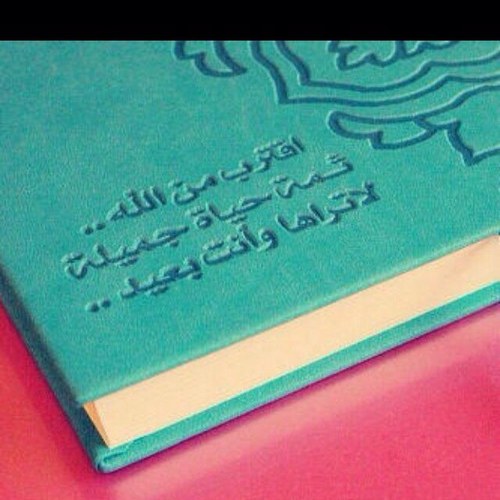 اقترب من الله..
ثمة حياة جميلة
لاتراها وأنت بعيد..